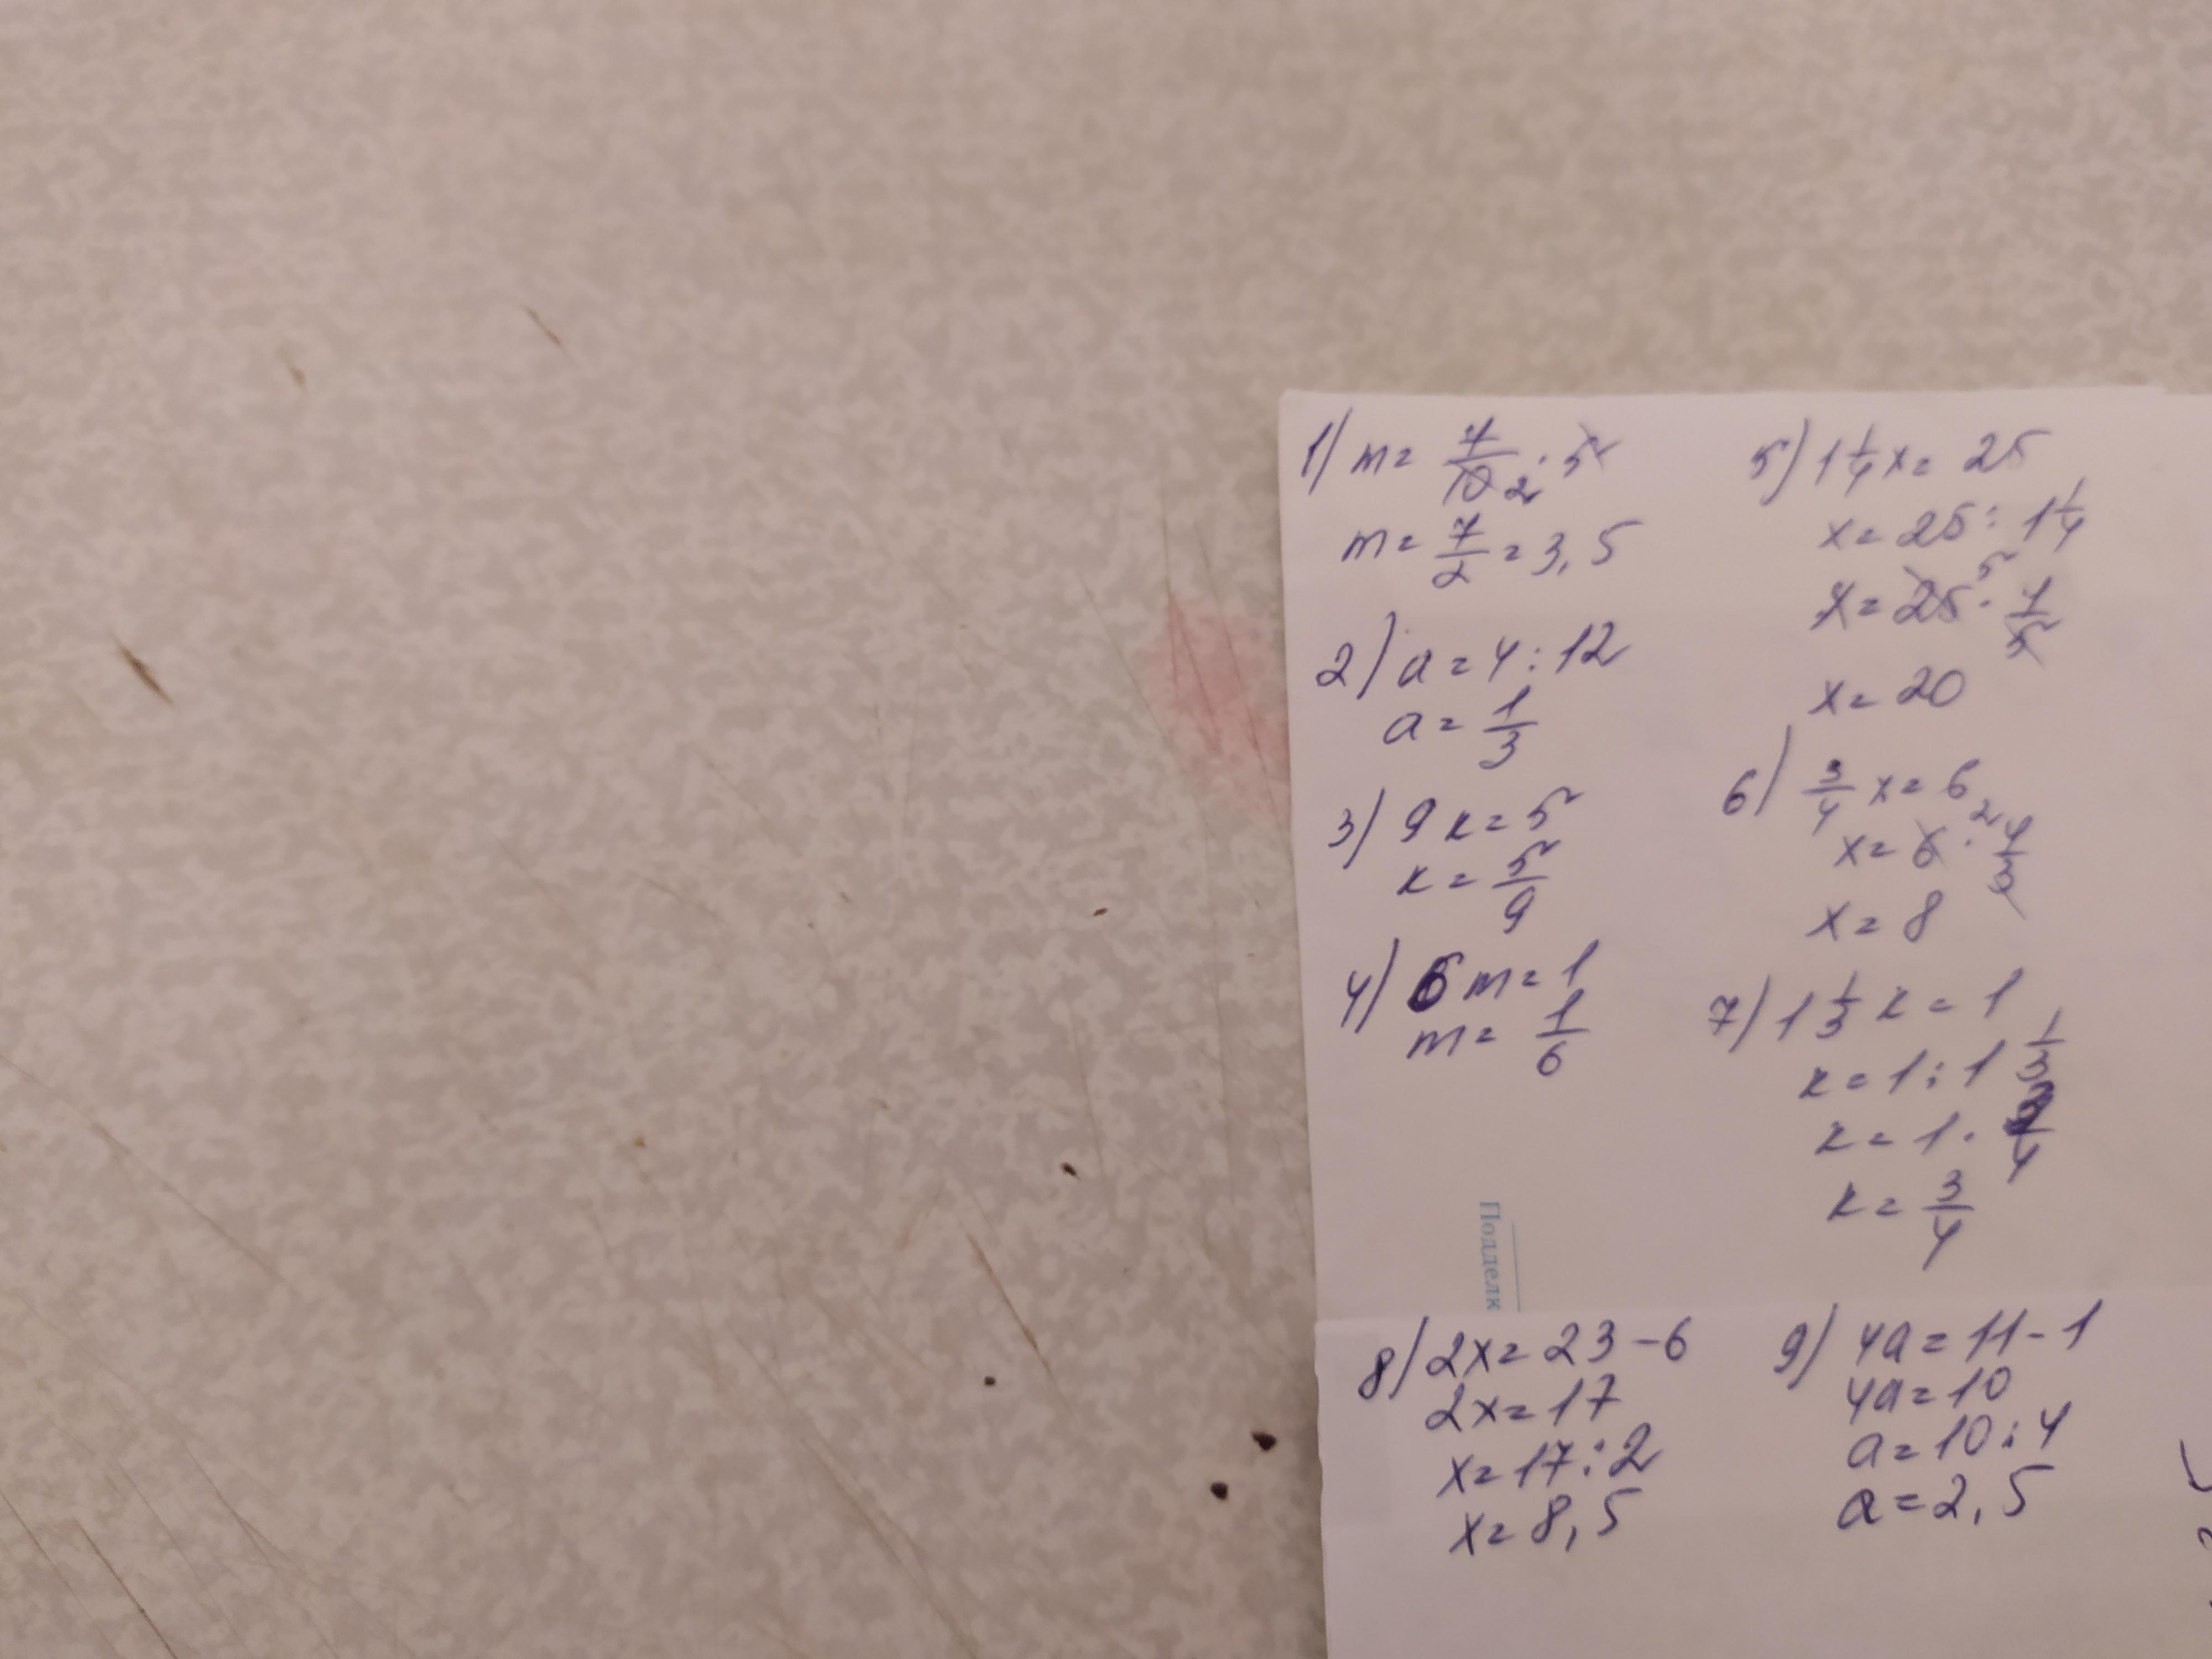 1) m = 7/10 2 · 5
m = 7/2 = 3,5
2) a = 4 : 12
a = 1/3
3) 9к = 5
к = 5/9
4) 6m = 1
m = 1/6
5) 1 1/4 x = 25
x = 25 : 1 1/4
x = 25 5 · 4/5
x = 20
6) 3/4 x = 6
x = 6 2 · 4/3
x = 8
7) 1 1/3 к = 1
к = 1 : 1 1/3
к = 1 · 3/4
к = 3/4
Подделк
8) 2x = 23 - 6
2x = 17
x = 17 : 2
x = 8,5
9) 4a = 11 - 1
4a = 10
a = 10 : 4
a = 2,5